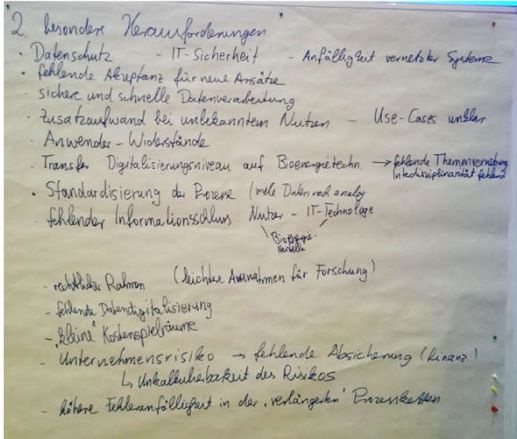 2. besondere Herausforderungen
· Datenschutz - IT-Sicherheit - Anfälligkeit vernetzter Systeme
· fehlende Akzeptanz für neue Ansätze
· sichere und schnelle Datenverarbeitung
· Zusatzaufwand bei unbekanntem Nutzen - Use-Cases unklar
· Anwender-Widerstände
· Transfer Digitalisierungsniveau auf Bioenergietechn. → fehlende Themenvernetzung
Interdisziplinarität fehlend
· Standardisierung der Prozesse (viele Daten noch analog
· fehlender Informationsschluss Nutzer - IT-Technologe
Bioenergie-
- rechtlicher Rahmen (leichter Ausnahmen für Forschung)
- fehlende Datendigitalisierung
- "kleine" Kostenspielräume
- Unternehmensrisiko → fehlende Absicherung (finanz.)
↳ Unkalkulierbarkeit des Risikos
- höhere Fehleranfälligkeit in der "verlängerten" Prozessketten